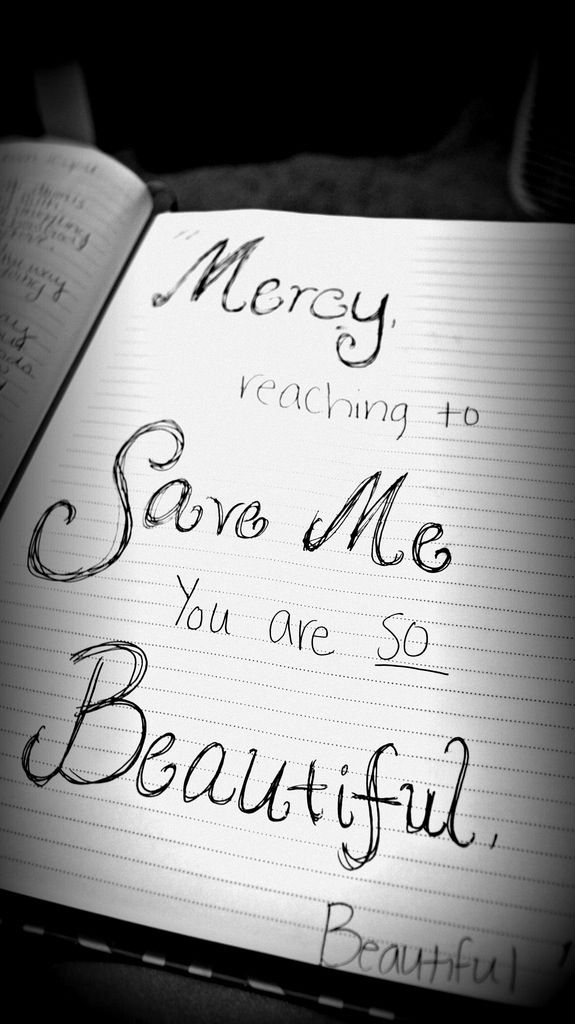 "Mercy,
reaching to
Save Me
You are so
Beautiful,
Beautiful"